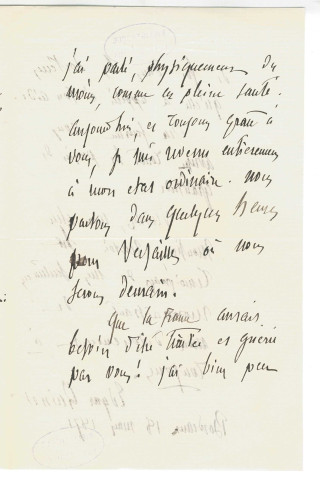 j'ai parlé, physiquement du
moins, comme en pleine santé.
aujourd'hui, et toujours grâce à
vous, je suis revenu entièrement
à mon état ordinaire. nous
partons dans quelques heures
pour Versailles où nous
serons demain.
Que la France aurait
besoin d'être traitée et guérie
par vous! j'ai bien peur